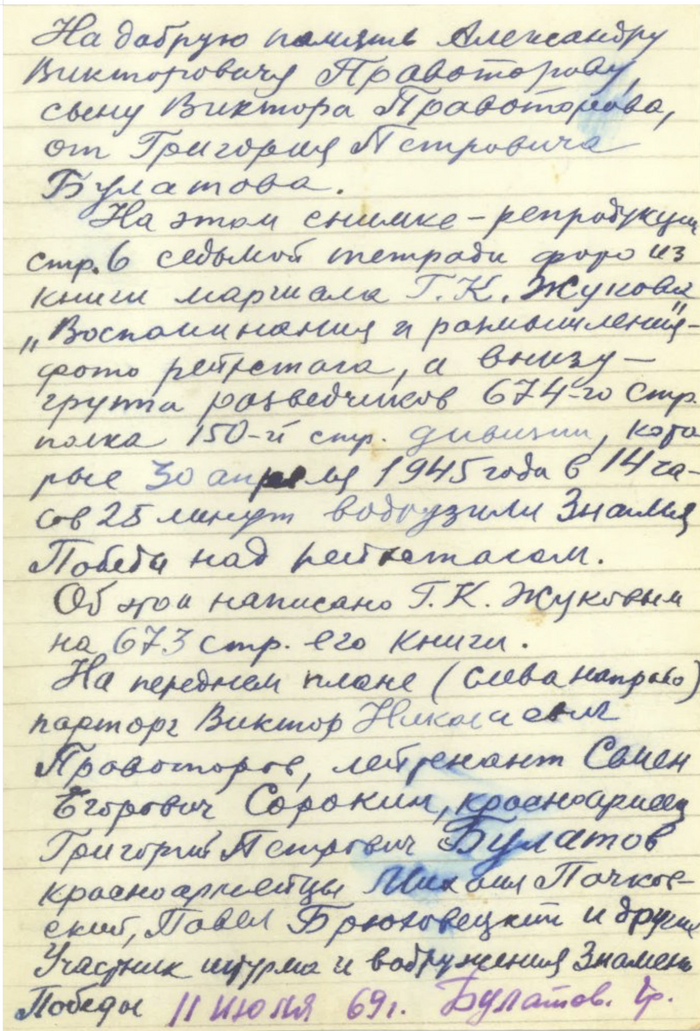 На добрую память Александру
Викторовичу Правоторову,
сыну Виктора Правоторова,
от Григория Петровича
Булатова.
На этом снимке - репродукции
стр. 6 седьмой тетради фото из
книги маршала Г. К. Жукова
„Воспоминания и размышления"-
фото рейхстага, а внизу –
группа разведчиков 674-го стр.
полка 150-й стр. дивизии, кото
рые 30 апреля 1945 года в 14 ча-
сов 25 минут водрузили Знамя
Победы над рейхстагом.
Об этом написано Г. К. Жуковым
на 673 стр. его книги.
На переднем плане (слева направо)
парторг Виктор Николаевич
Правоторов, лейтенант Семен
Егорович Сорокин, красноармеец
Григорий Петрович Булатов
красноармейцы Михаил Пачков-
ский, Павел Брюховецкий и другие
Участник штурма и водружения Знамени
Победы 11 июля 69 г. Булатов. Гр.